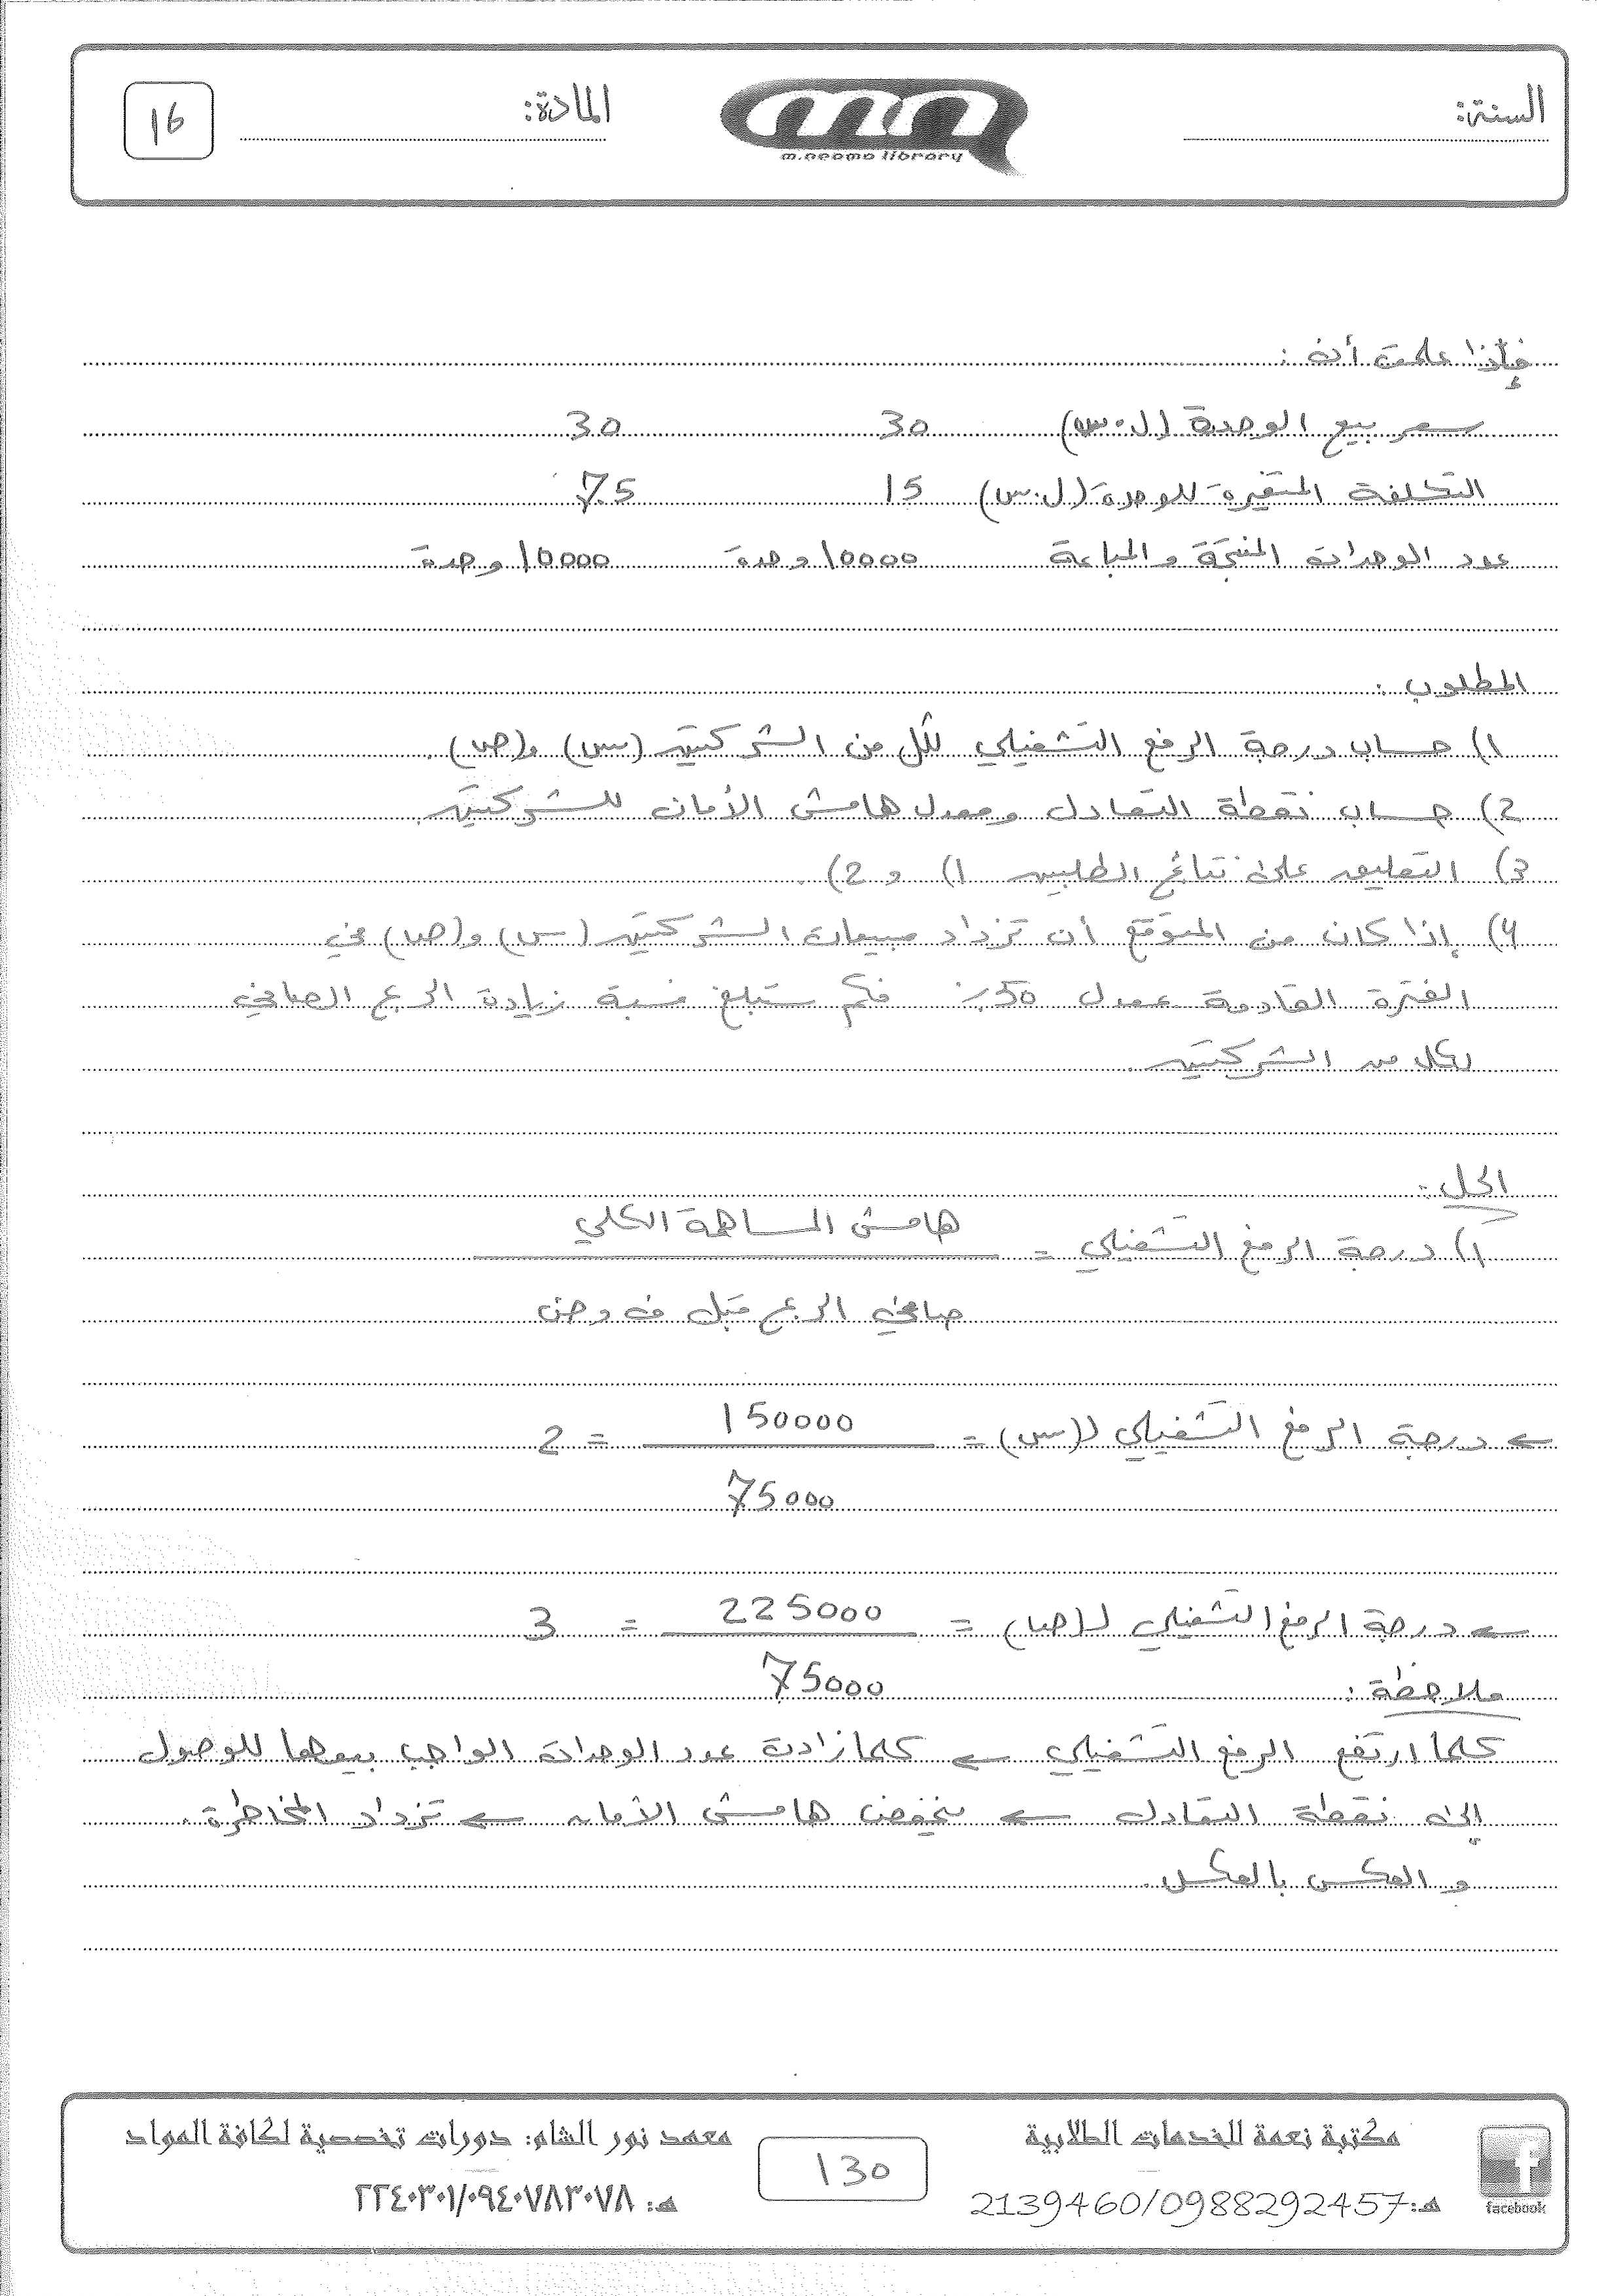 السنة:
المادة:
16
m.neoma library
فإذا علمت أن :
سعر بيع الوحدة (ل.س) 30 30
التكلفة المتغيرة للوحدة (ل.س) 15 7.5
عدد الوحدات المنتجة والمباعة 10000 وحدة 10000 وحدة
المطلوب :
1) حساب درجة الرفع التشغيلي لكل من الشركتين (س) و(ص).
2) حساب نقطة التعادل ومعدل هامش الأمان للشركتين.
3) التعليق على نتائج الطلبين 1) و 2).
4) إذا كان من المتوقع أن تزداد مبيعات الشركتين (س) و(ص) في
الفترة القادمة بمعدل 50% فكم ستبلغ نسبة زيادة الربح الصافي
لكل من الشركتين.
الحل :
1) درجة الرفع التشغيلي = هامش المساهمة الكلي
صافي الربح قبل ف وض
← درجة الرفع التشغيلي لـ(س) = 150000 = 2
75000
← درجة الرفع التشغيلي لـ(ص) = 225000 = 3
75000
ملاحظة :
كلما ارتفع الرفع التشغيلي ← كلما زادت عدد الوحدات الواجب بيعها للوصول
إلى نقطة التعادل ← ينخفض هامش الأمان ← تزداد المخاطرة.
و العكس بالعكس.
مكتبة نعمة للخدمات الطلابية
هـ: 2139460/0988292457
facebook
130
معهد نور الشام: دورات تخصصية لكافة المواد
هـ: ٢٢٤٠٣٠١/٠٩٤٠٧٨٣٠٧٨